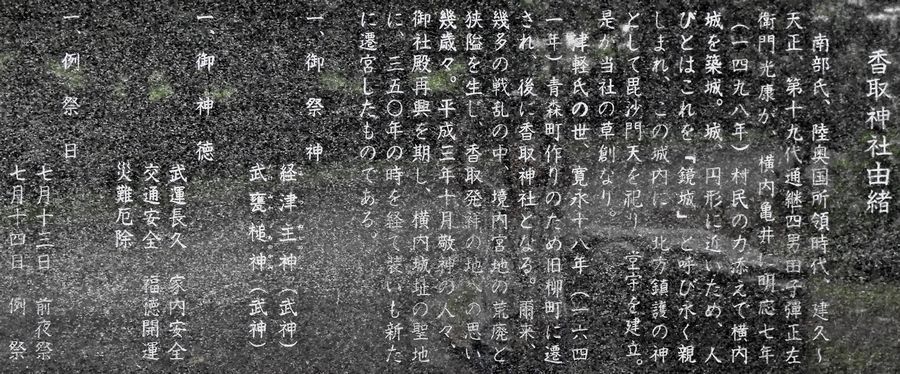 香取神社由緒
南部氏、陸奥国所領時代、建久〜
天正、第十九代通継四男田子彈正左
衛門光康が、横内亀井に明応七年
（一四九八年）村民の力添えで横内
城を築城。城、円形に近いため、人
びとはこれを『鏡城』と呼び永く親
しまれ、この城内に、北方鎮護の神
として毘沙門天を祀り、堂宇を建立。
是が当社の草創なり。
津軽氏の世、寛永十八年（一六四
一年）青森町作りのため旧柳町に遷
され、後に香取神社となる。爾来、
幾多の戦乱の中、境内宮地の荒廃と
狭隘を生じ、香取発祥の地への思い
幾歳々。平成三年十月敬神の人々、
御社殿再興を期し、横内城址の聖地
に、三五〇年の時を経て装いも新た
に遷宮したものである。
一、御祭神
経津主神（武神）
武甕槌神（武神）
一、御神徳
武運長久　家内安全
交通安全　福徳開運
災難厄除
一、例祭日
七月十三日　前夜祭
七月十四日　例祭